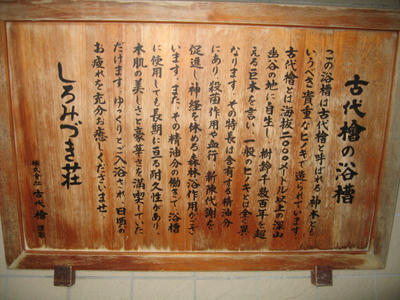 古代檜の浴槽
この浴槽は古代檜と呼ばれる神木とも
いうべき貴重なヒノキで造られています。
古代檜とは海抜二〇〇〇メートル以上の深山
幽谷の地に自生し、樹齢千数百年を超
える巨木を言い、一般のヒノキとは全く異
なります。その特長は含有する精油分
にあり、殺菌作用や血行・新陳代謝を
促進し神経を休める森林浴作用がござ
います。また、その精油分の働きで浴槽
に使用しても長期に亘る耐久性があり、
木肌の美しさと豪華さを満喫していた
だけます。ゆっくりとご入浴され、日頃の
お疲れを充分お癒しくださいませ。
しろみづき荘
株式会社 古代檜